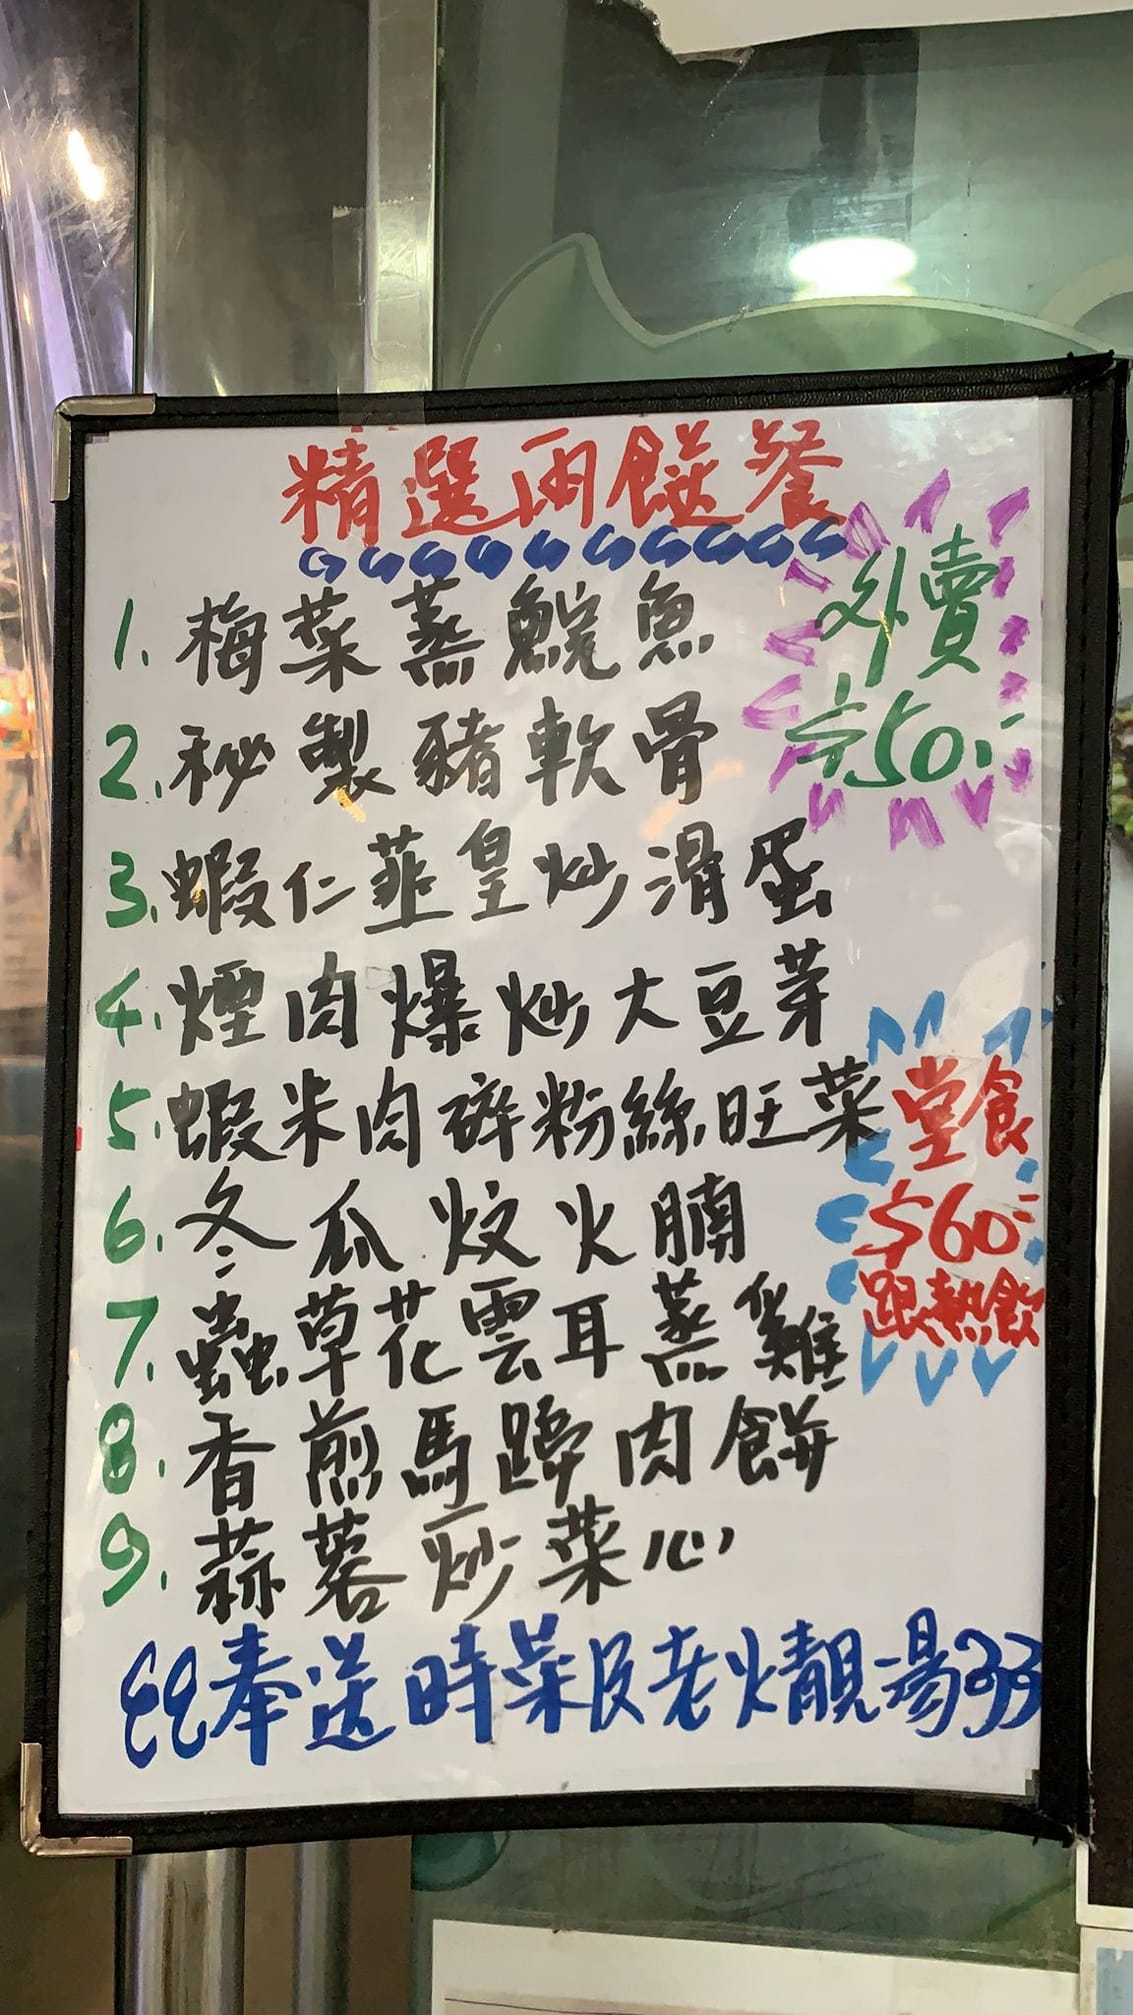 精選両餸餐
外賣
$50.
1. 梅菜蒸鯇魚
2. 秘製豬軟骨
3. 蝦仁韮皇炒滑蛋
4. 煙肉爆炒大豆芽
5. 蝦米肉碎粉絲旺菜
堂食
$60
跟熱飲
6. 冬瓜炆火腩
7. 蟲草花雲耳蒸雞
8. 香煎馬蹄肉餅
9. 蒜蓉炒菜心
奉送時菜及老火靚湯